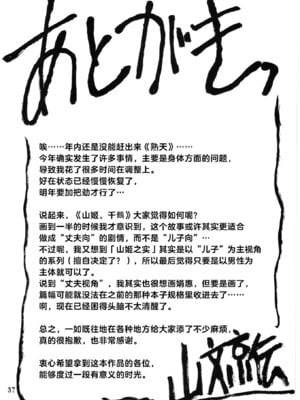 あとがきっ
唉……年内还是没能赶出来《熟天》……
今年确实发生了许多事情，主要是身体方面的问题，
导致我花了很多时间在调整上。
好在状态已经慢慢恢复了，
明年要加把劲才行了……
说起来，《山姬、干鵺》大家觉得如何呢？
画到一半的时候我才意识到，这个故事或许其实更适合
做成“丈夫向”的剧情，而不是“儿子向”……
不过呢，我又想到《山姬之实》其实是以“儿子”为主视角
的系列（擅自决定了？），所以最后觉得只要是以男性为
主体就可以了。
说到“丈夫视角”，我其实也很想画娟惠，但要是画了，
篇幅可能就没法在之前的那种本子规格里收进去了……
啊，现在已经困得头脑不太清醒了。
总之，一如既往地在各种地方给大家添了不少麻烦，
真的很抱歉，也非常感谢。
衷心希望拿到这本作品的各位，
能够度过一段有意义的时光。
山文京伝
37